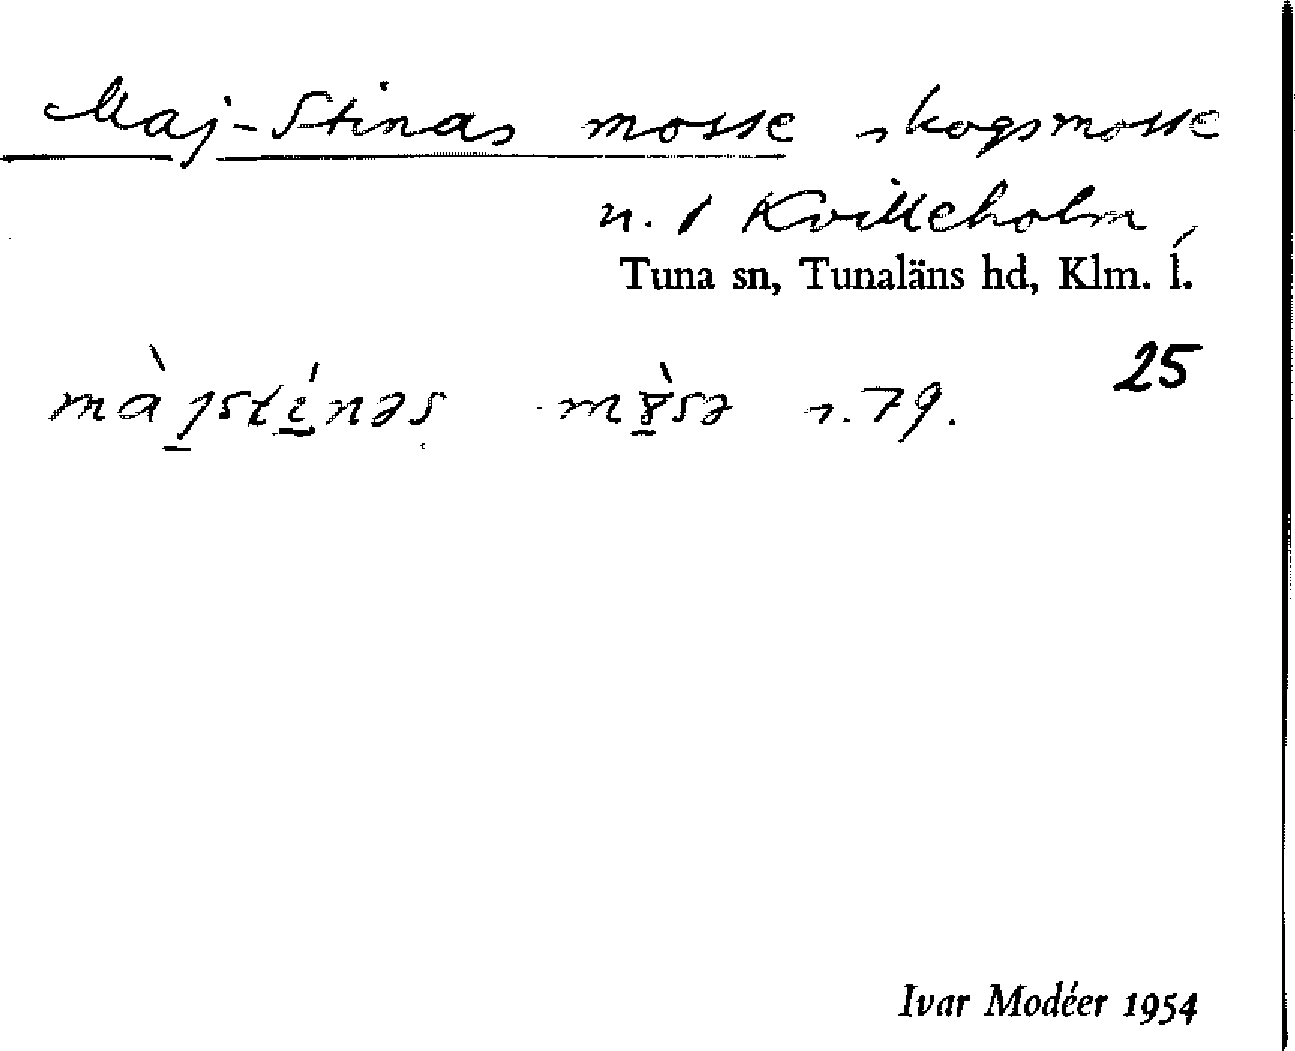 Maj-Stinas mosse skogsmosse
n. 1 Kvilleholm,
Tuna sn, Tunaläns hd, Klm. l.
25
79.
Ivar Modéer 1954